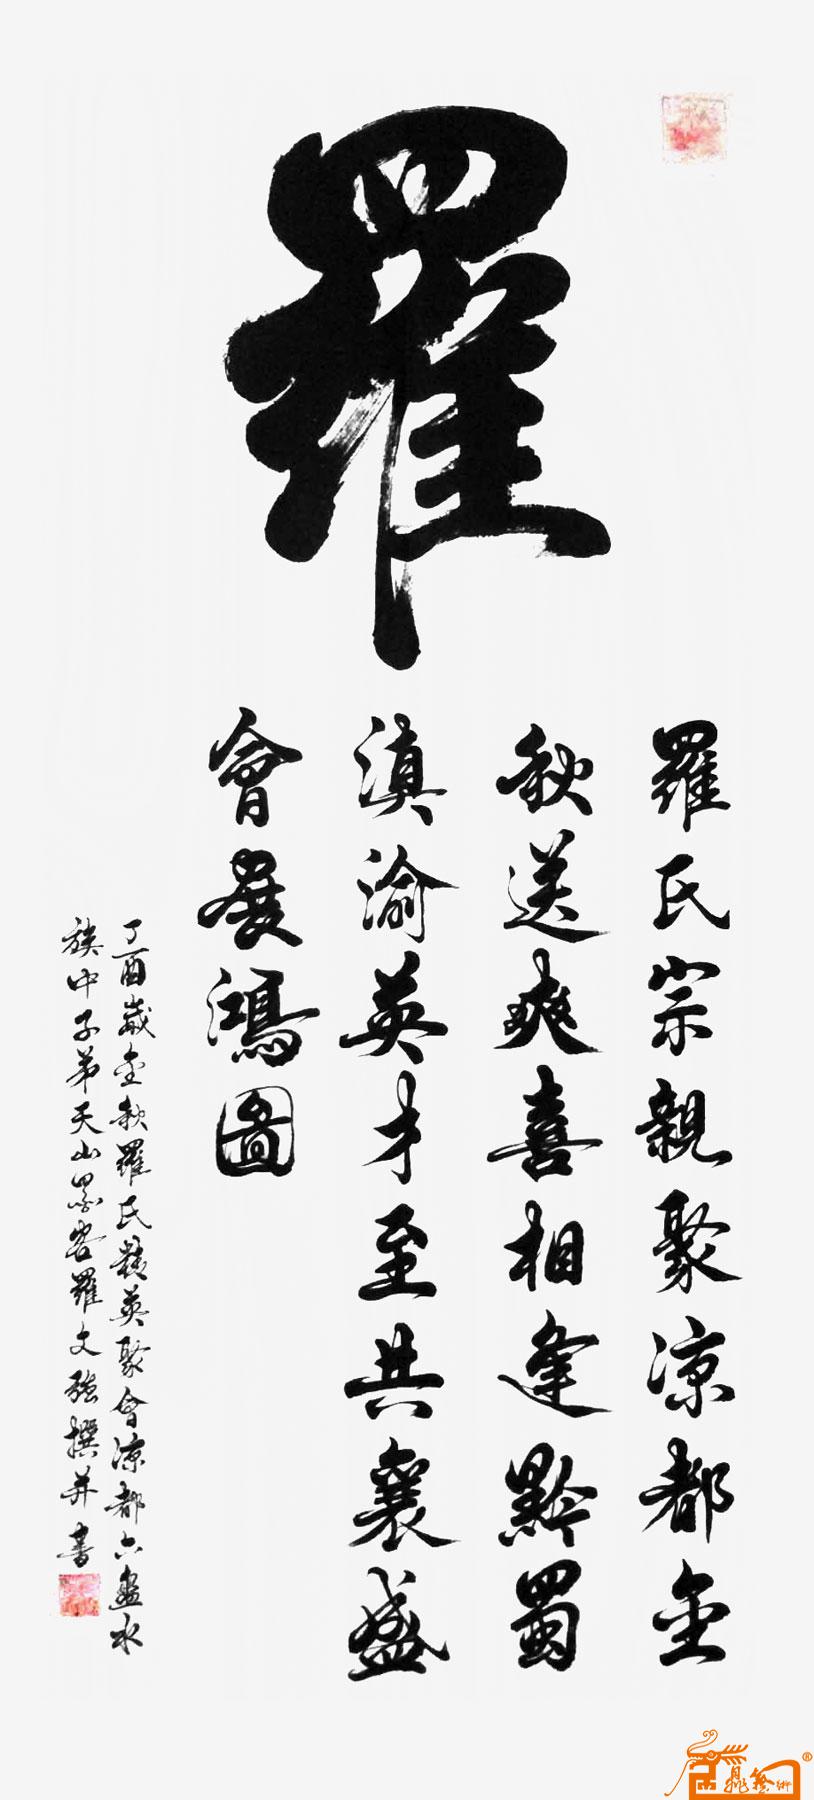 羅
羅氏宗親聚凉都金
秋送爽喜相逢黔蜀
滇渝英才至共襄盛
會展鴻圖
丁酉歲金秋羅氏精英聚會凉都六盤水
族中子弟天山墨客羅文強撰并書